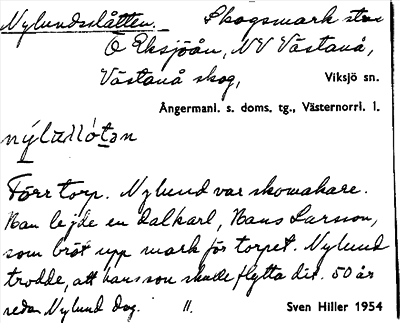 Nylundsslåtten. Skogsmark
O Eksjöån, NV Västanå,
Västanå skog, Viksjö sn.
Ångermanl. s. doms. tg., Västernorrl. l.
Förr torp. Nylund var skomakare.
Han lejde en dalkarl, Hans Larsson,
som bröt upp mark för torpet. Nylund
trodde, att hans son skulle flytta dit. 50 år
sedan Nylund dog. ll. Sven Hiller 1954